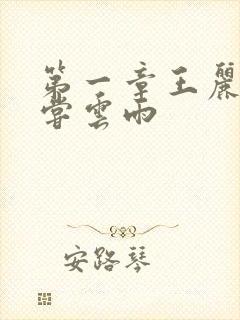 第一章王麗
嘗雲雨
安路琴